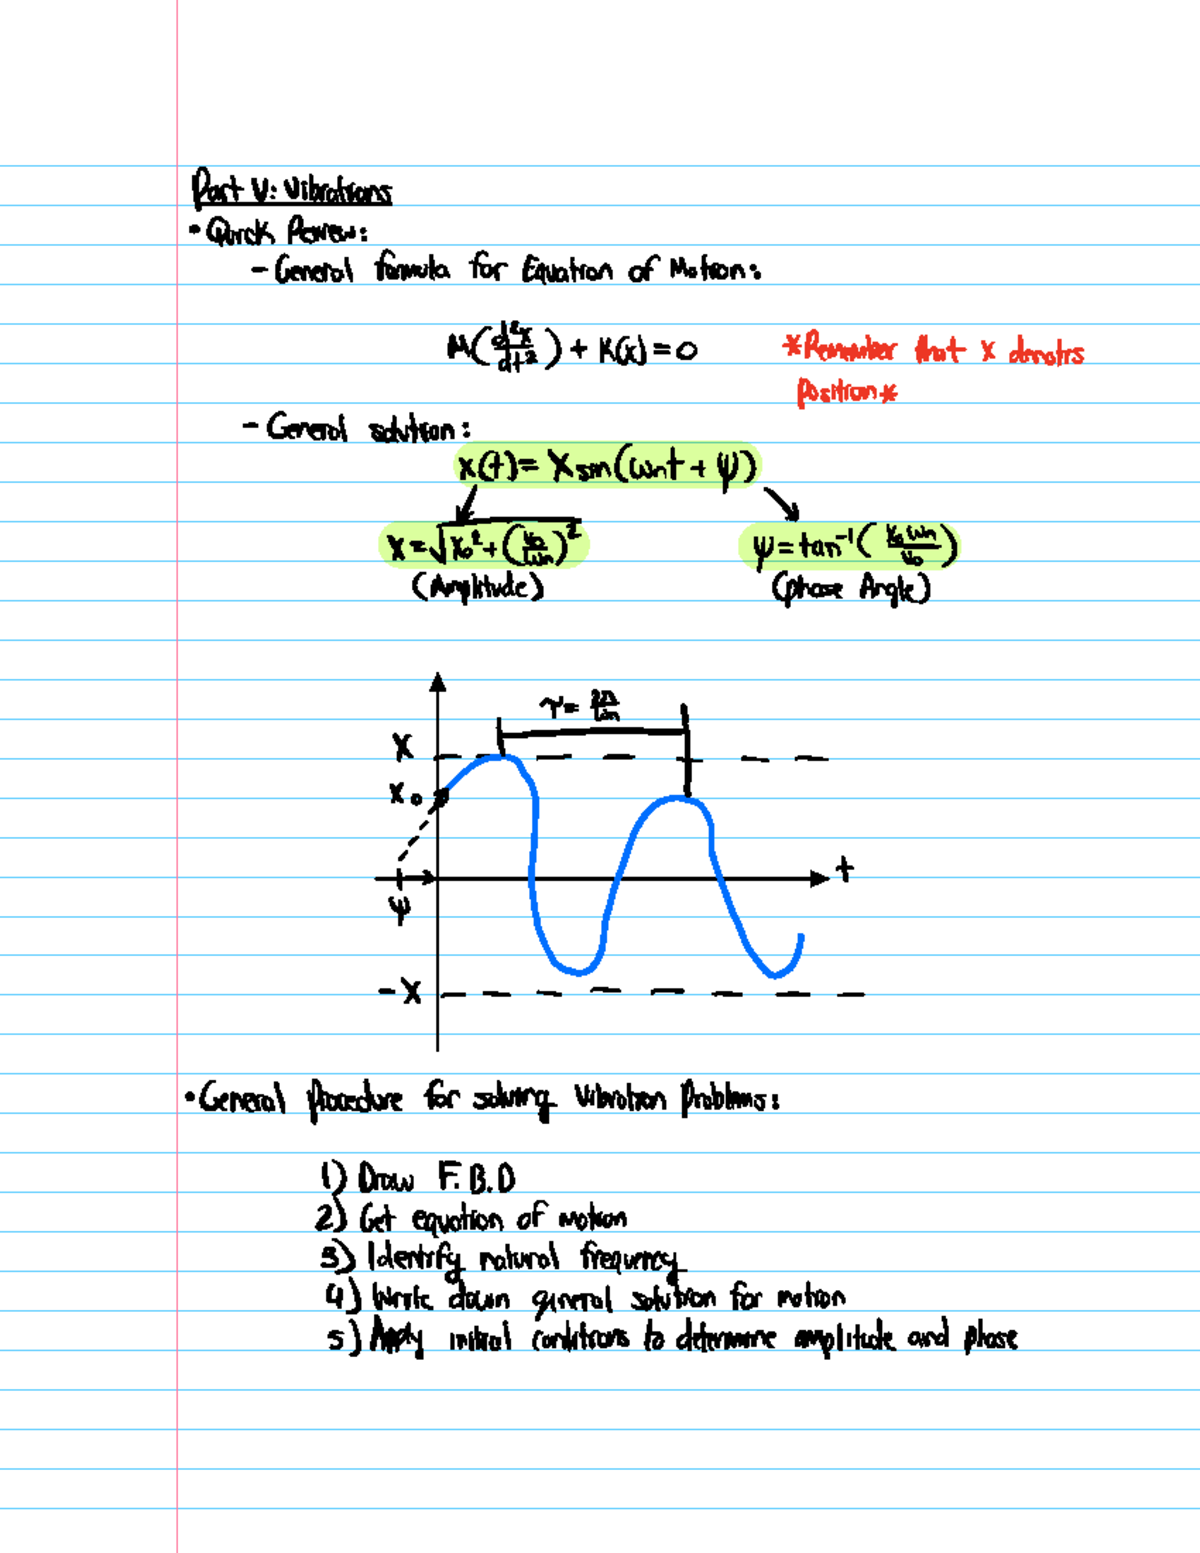 Part V: Vibrations
• Quick Review:
- General formula for Equation of Motion:
M(d²x/dt²) + K(x) = 0 *Remember that x denotes
position*
- General solution:
x(t) = X sin(ωnt + ψ)
X = √(x₀² + (v₀/ωn)²) ψ = tan⁻¹(x₀ωn/v₀)
(Amplitude) (phase Angle)
τ = 2π/ωn
X
x₀
t
ψ
-X
• General Procedure for solving Vibration Problems:
1) Draw F.B.D
2) Get equation of motion
3) Identify natural frequency
4) Write down general solution for motion
5) Apply initial conditions to determine amplitude and phase